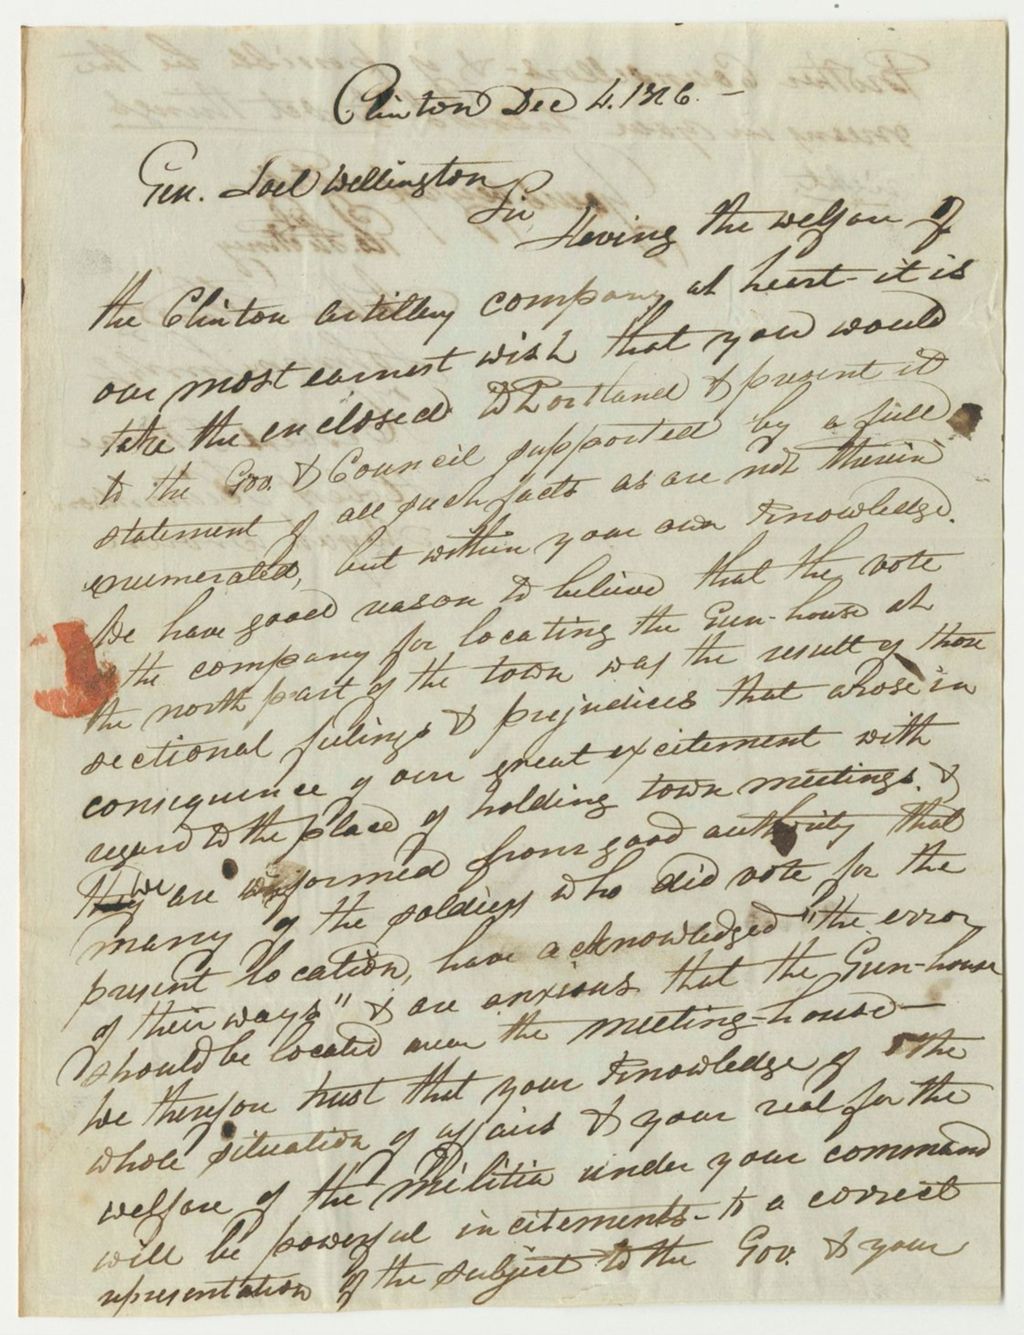 Clinton Dec 4. 1826. –
Gen. Joel Wellington
Sir, Having the welfare of
the Clinton artillery company at heart – it is
our most earnest wish that you would
take the enclosed to Portland & present it
to the Gov. & Council supported by a full
statement of all such facts as are not therein
enumerated, but within your own knowledge.
We have good reason to believe that the vote
the company for locating the Gun-house at
the north part of the town was the result of those
sectional feelings & prejudices that arose in
consequence of our great excitement with
regard to the place of holding town meetings. &
we are informed from good authority that
many of the soldiers who did vote for the
present location, have acknowledged "the error
of their ways" & are anxious that the Gun-house
should be located near the meeting-house –
We therefore trust that your knowledge of the
whole situation of affairs & your zeal for the
welfare of the Militia under your command
will be powerful incitements – to a correct
representation of the subject to the Gov. & your